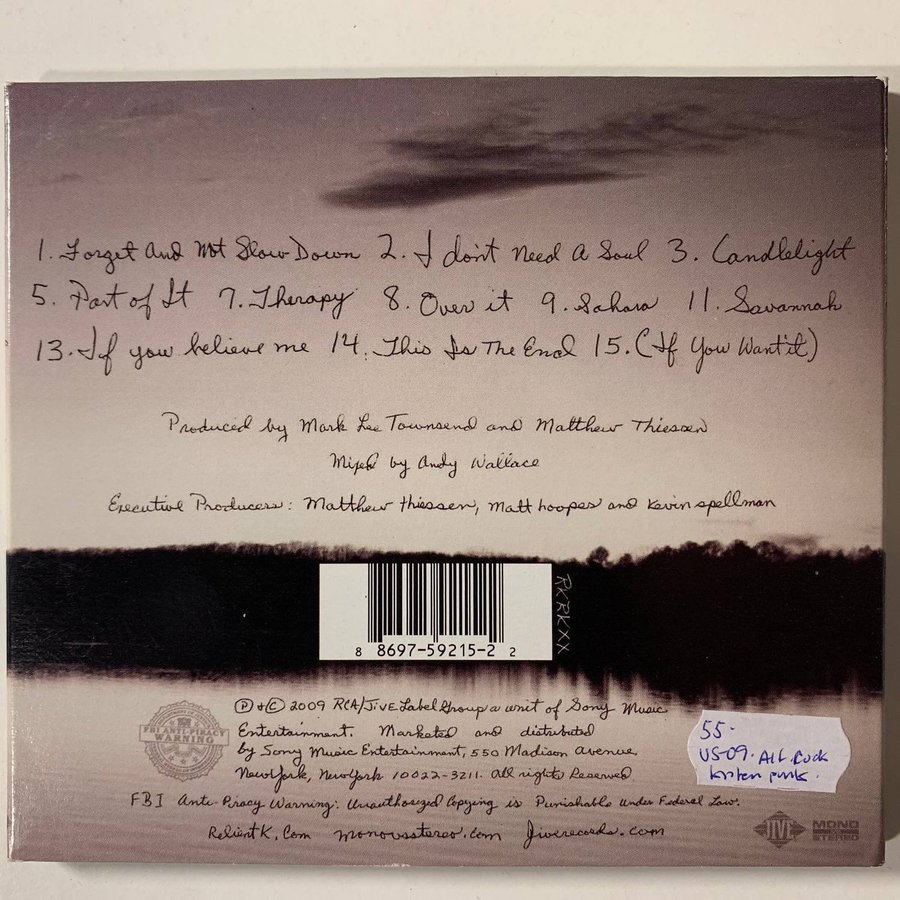 1. Forget And Not Slow Down 2. I don't Need A Soul 3. Candlelight
5. Part of It 7. Therapy 8. Over it 9. Sahara 11. Savannah
13. If you believe me 14. This Is The End 15. (If You Want it)
Produced by Mark Lee Townsend and Matthew Thiessen
Mixed by Andy Wallace
Executive Producers: Matthew thiessen, Matt hooper and Kevin spellman
RKRKXX
8 8697-59215-2 2
℗ & © 2009 RCA/JIVE Label Group a unit of Sony Music
Entertainment. Marketed and distributed
by Sony Music Entertainment, 550 Madison Avenue,
New York, New York 10022-3211. All rights Reserved
FBI ANTI-PIRACY
WARNING
FBI Anti-Piracy Warning: Unauthorized Copying is Punishable Under Federal Law.
RelientK.Com monovsstereo.com Jiverecords.com
55.-
US-09. Alt. Rock
kristen punk.
JIVE
MONO
VS
STEREO